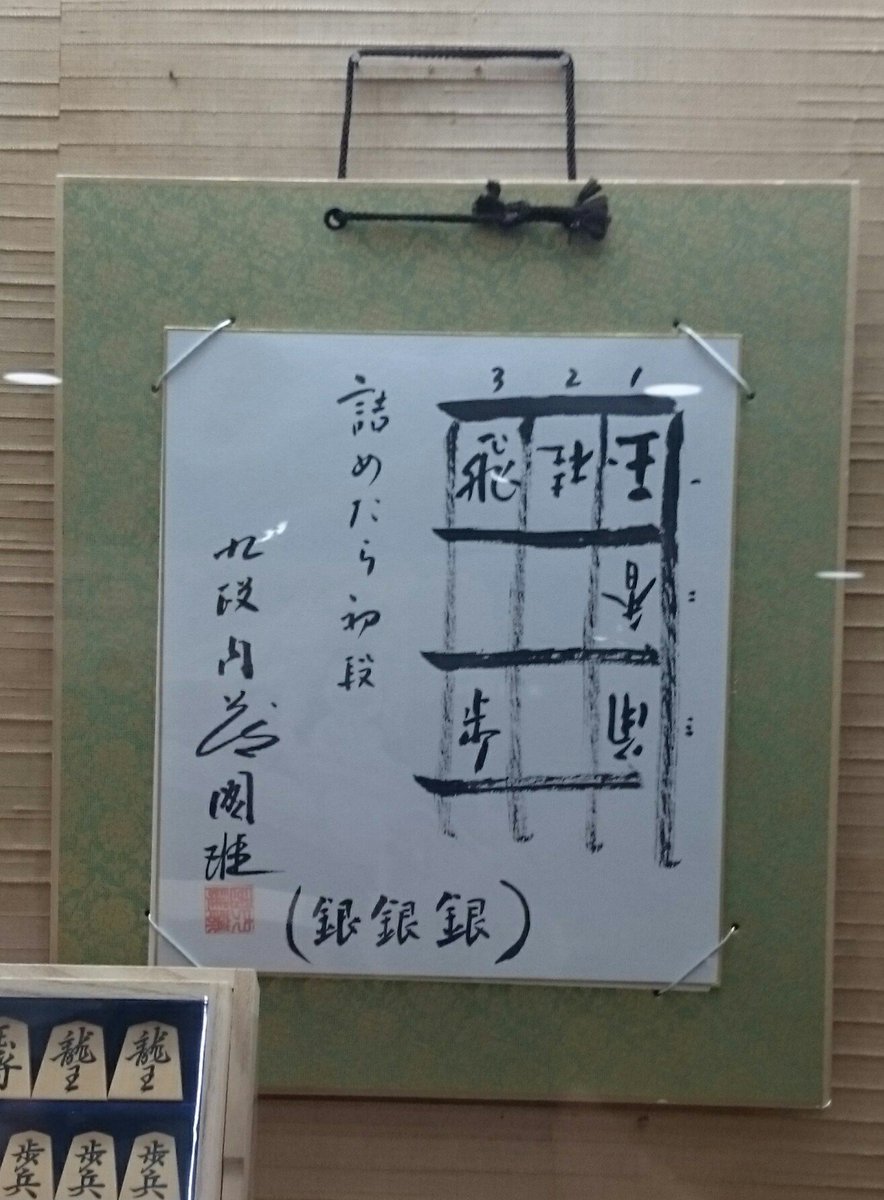 3 2 1
飛 桂 玉 一
香 二
歩 三
詰めたら初段
九段内藤國雄
(銀銀銀)
龍王 龍王
歩兵 歩兵 歩兵